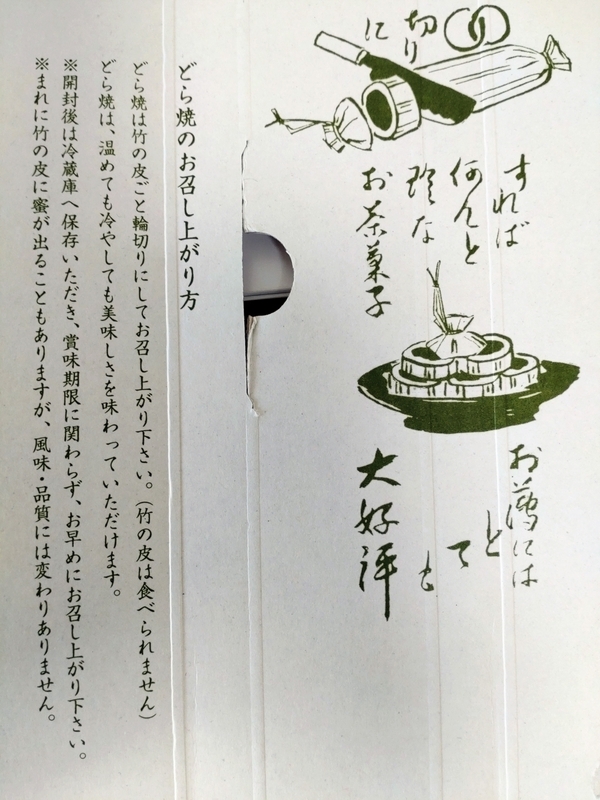 切り
に
すれば
何んと
珍な
お茶菓子
お薄には
と
て
も
大好評
どら焼のお召し上がり方
どら焼は竹の皮ごと輪切りにしてお召し上がり下さい。(竹の皮は食べられません)
どら焼は、温めても冷やしても美味しさを味わっていただけます。
※開封後は冷蔵庫へ保存いただき、賞味期限に関わらず、お早めにお召し上がり下さい。
※まれに竹の皮に蜜が出ることもありますが、風味・品質には変わりありません。